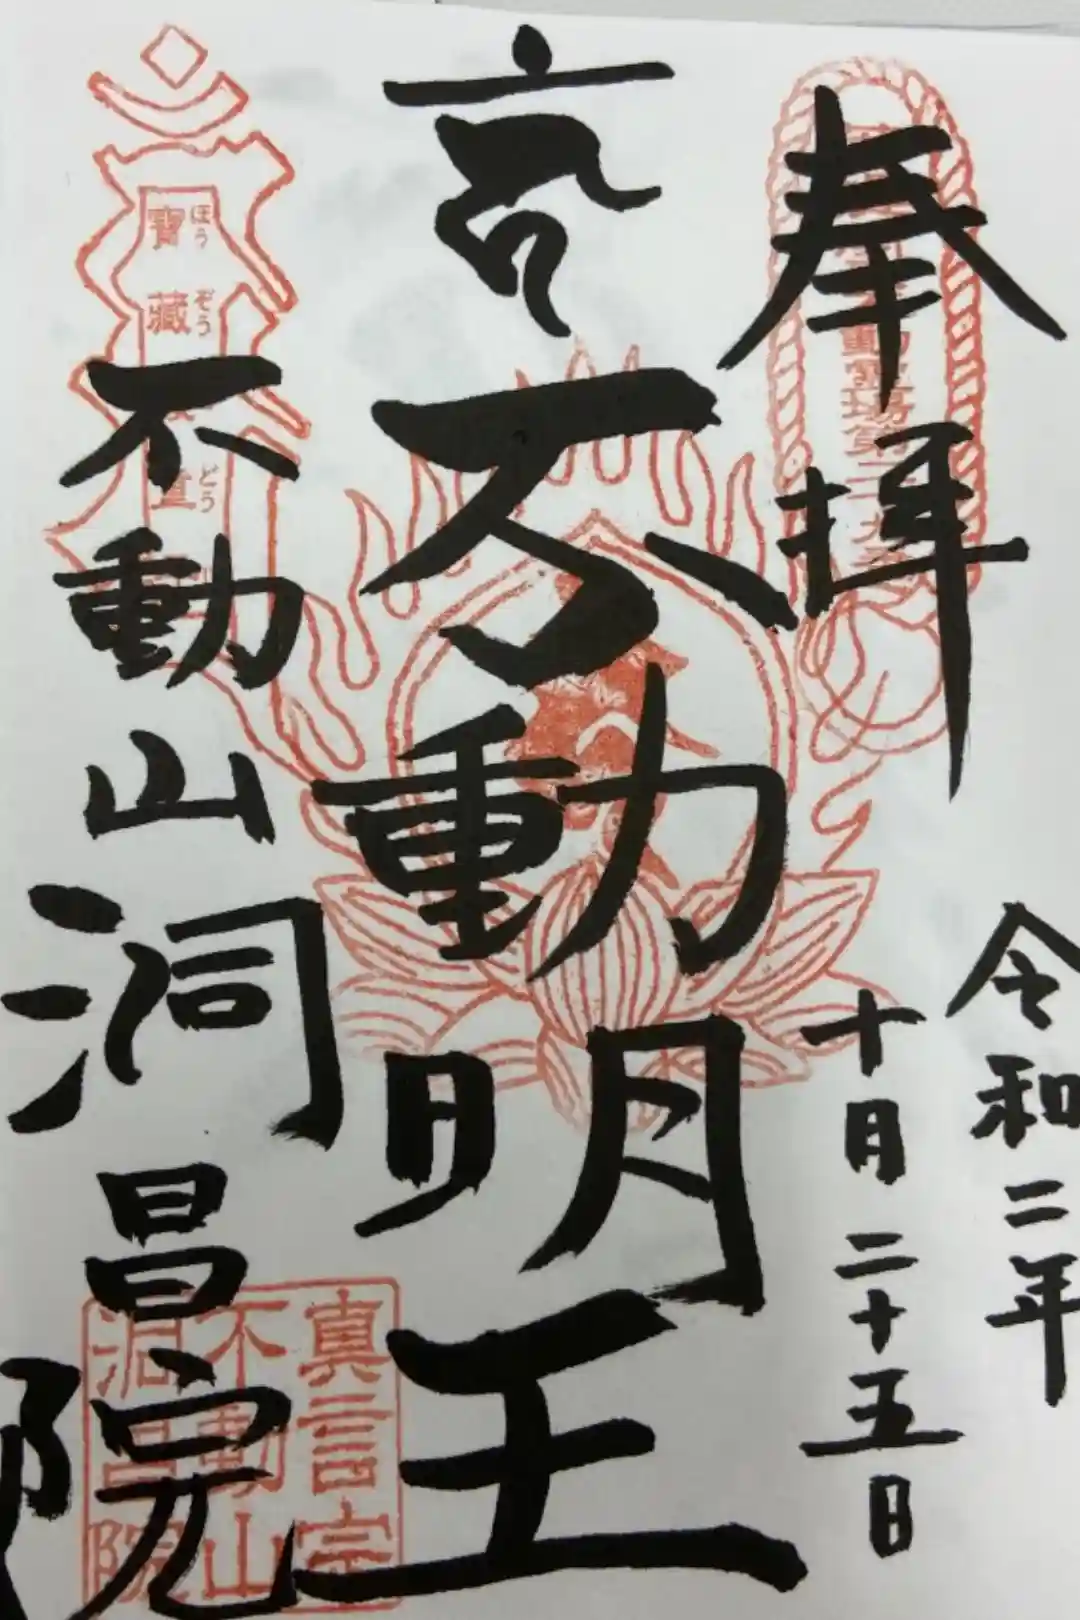 奉拝
動霊場第二十九番
令和二年
十月二十五日
不動明王
寶藏
ほうぞう
童
どう
不動山洞昌院
真言宗
不動山
洞昌院